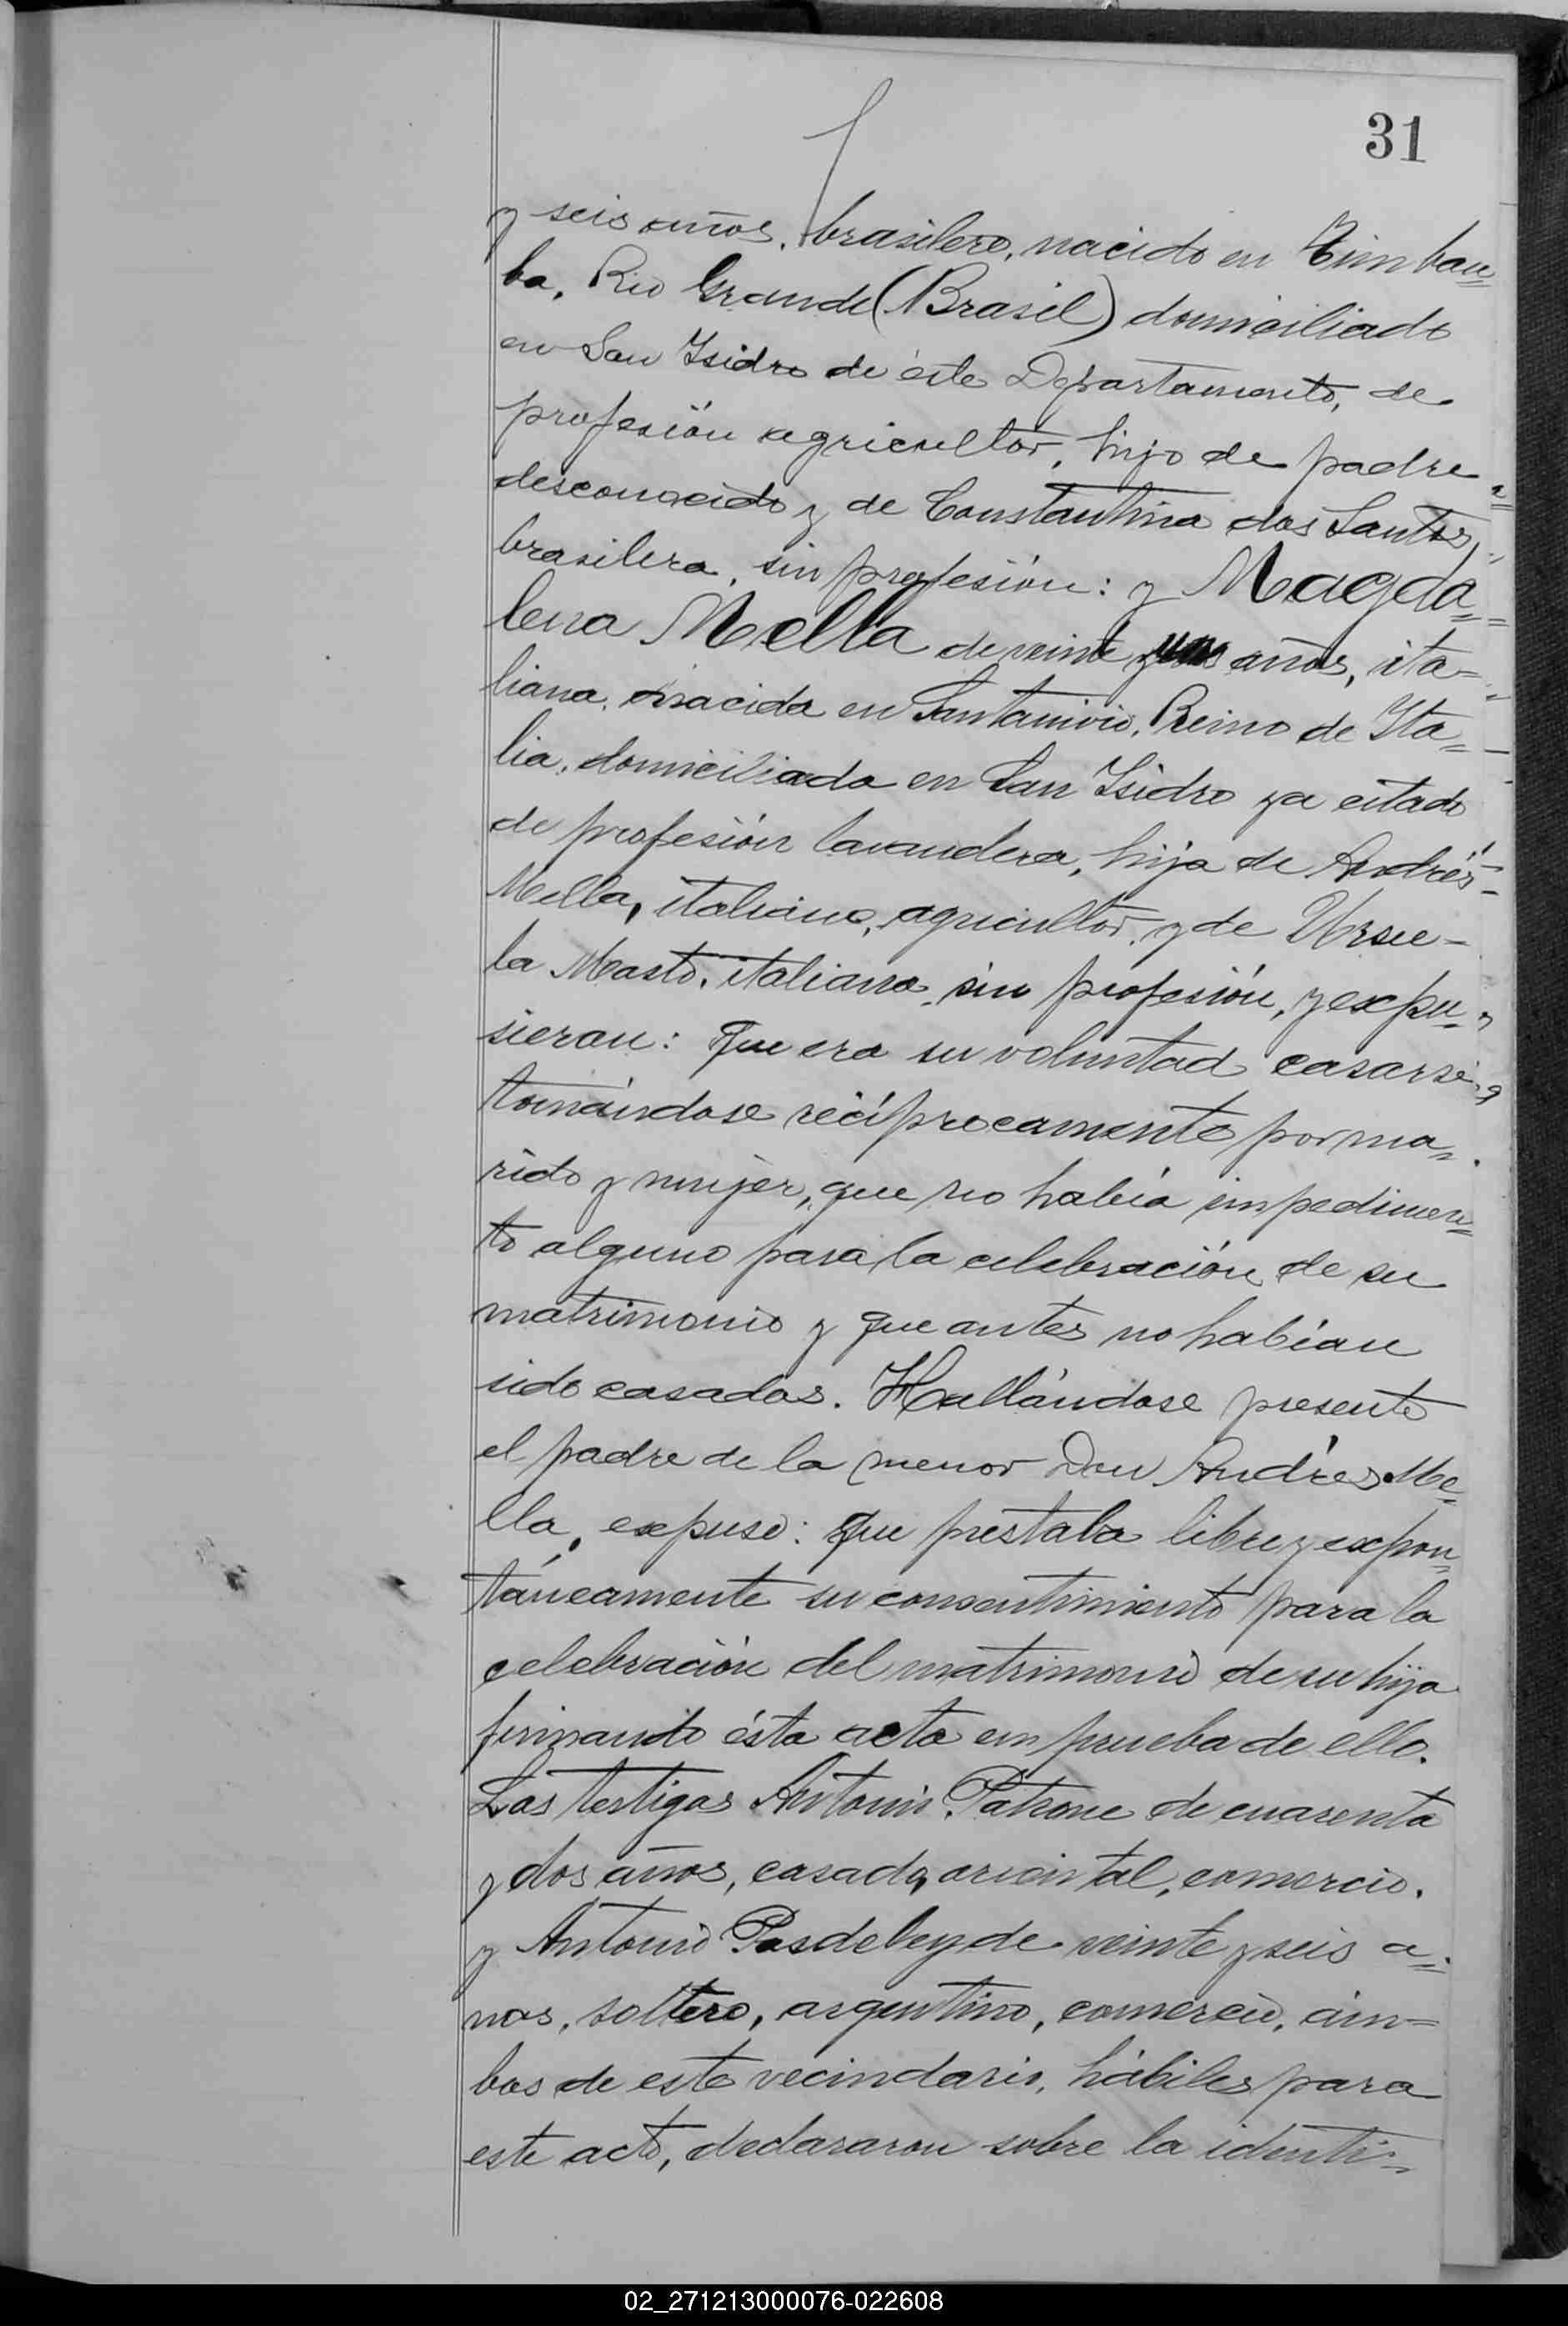 31
y seis años, brasilero, nacido en Timbau=
ba, Rio Grande (Brasil) domiciliado
en San Isidro de éste Departamento, de
profesión agricultor, hijo de padre
desconocido y de Constantina dos Santos,
brasilera, sin profesión: y Magda=
lena Mella de veinte y años, ita=
liana, nacida en Reino de Ita=
lia, domiciliada en San Isidro ya citado
de profesión lavandera, hija de Andrés
Mella, italiano, agricultor, y de Ursu-
la Masto, italiana, sin profesión, y expu=
sieron: Que era su voluntad casarse,
tomándose recíprocamente por ma=
rido y mujer, que no había impedimen=
to alguno para la celebración de su
matrimonio y que antes no habían
sido casados. Hallándose presente
el padre de la menor Don Andrés Me=
lla, expuso: Que prestaba libre y expon=
táneamente su consentimiento para la
celebración del matrimonio de su hija
firmando ésta acta en prueba de ello.
Los testigos Antonio Patrone de cuarenta
y dos años, casado, oriental, comercio.
y Antonio de veinte y seis a=
nos, soltero, argentino, comercio, am=
bos de este vecindario, hábiles para
este acto, declararon sobre la identi=
02_271213000076-022608